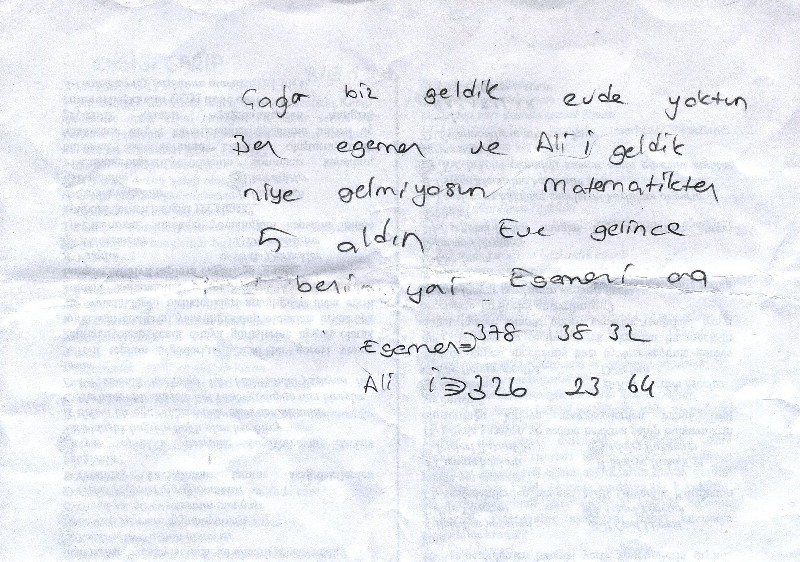 Çağa biz geldik evde yoktun
Ben egemen ve Ali i geldik
niye gelmiyosun Matematikten
5 aldın Eve gelince
beni yai Egemeni ara
Egemen=>378 38 32
Ali i=>326 23 64